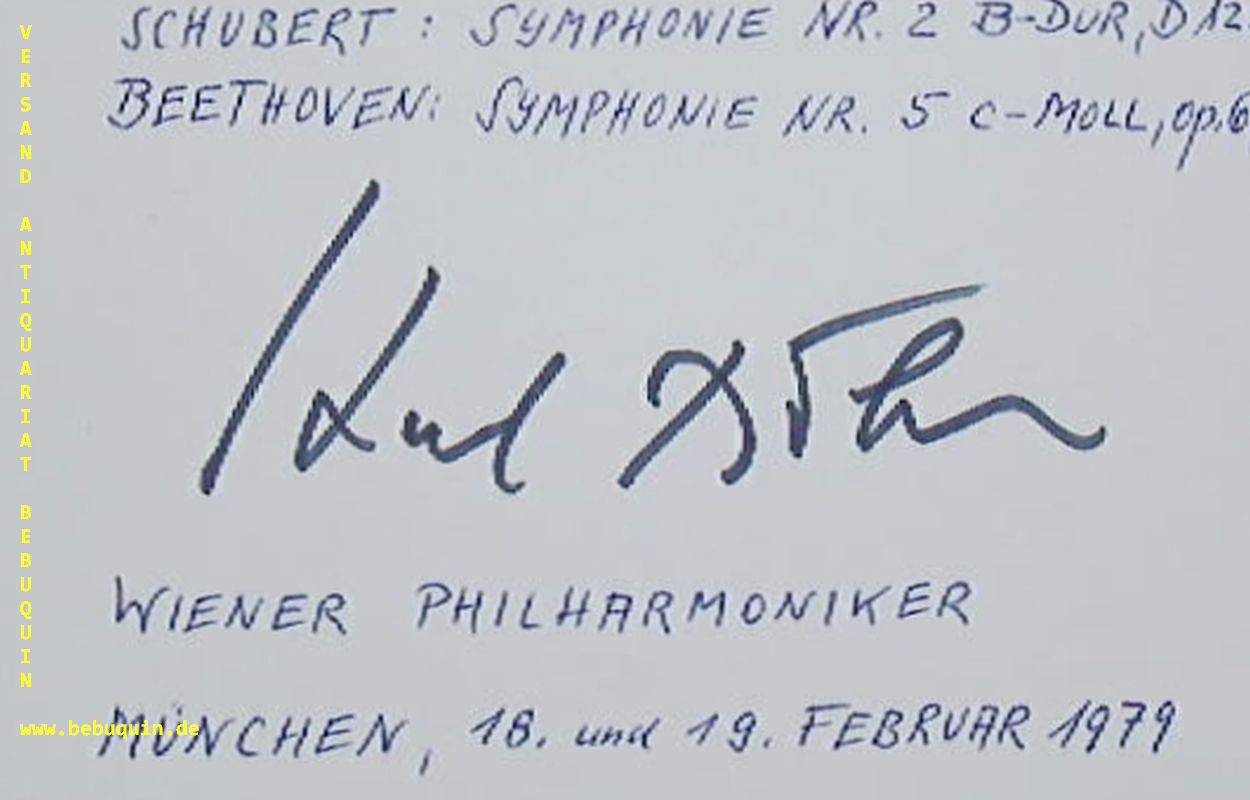 SCHUBERT : SYMPHONIE NR. 2 B-DUR, D 12
BEETHOVEN: SYMPHONIE NR. 5 C-MOLL, op. 6
Karl Böhm
WIENER PHILHARMONIKER
MÜNCHEN, 18. und 19. FEBRUAR 1979
VERSAND ANTIQUARIAT BEBUQUIN
www.bebuquin.de